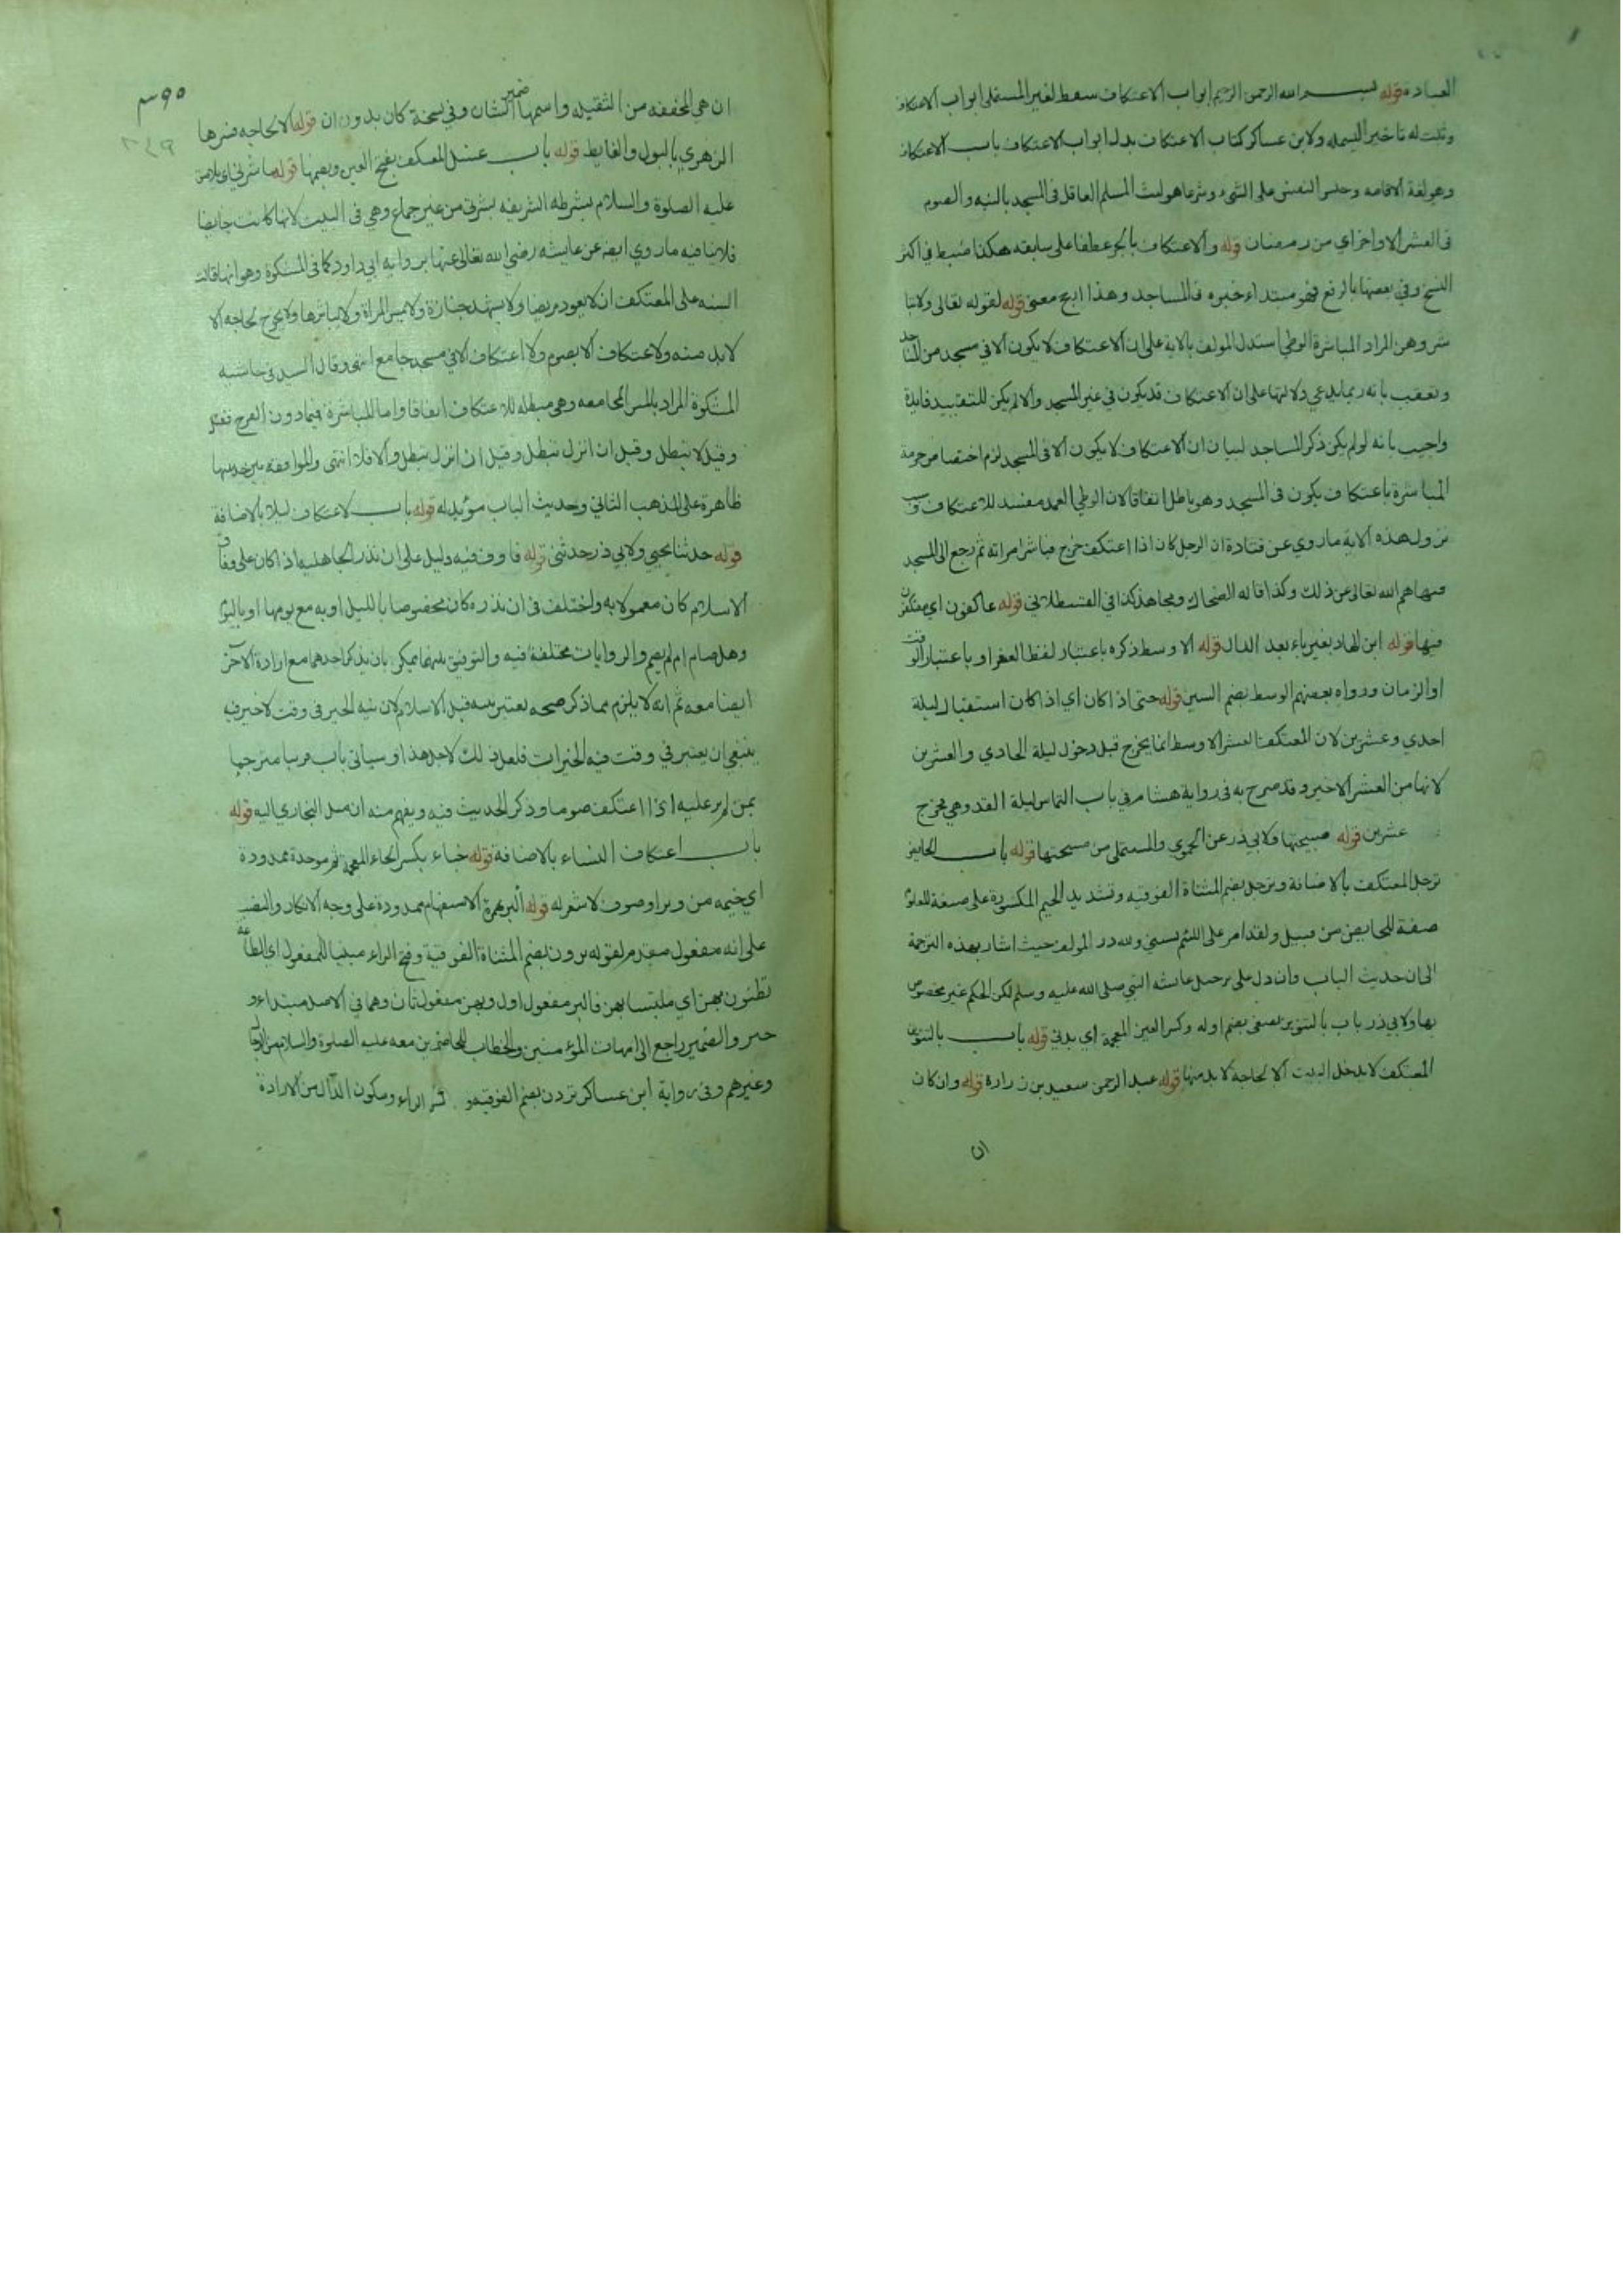 العبادة قوله بسم الله الرحمن الرحيم ابواب الاعتكاف سقط لغير المستملي ابواب الاعتكاف
وثبت له تاخير البسمله ولابن عساكر كتاب الاعتكاف بدل ابواب الاعتكاف باب الاعتكاف
وهو لغة الاقامه وحبس النفس على الشيء وشرعا هو لبث المسلم العاقل في المسجد بالنيه والصوم
في العشر الاواخر اي من رمضان قوله والاعتكاف بالجر عطفا على سابقه هكذا ضبط في اكثر
النسخ وفي بعضها بالرفع فهو مبتداء خبره في المساجد وهذا معنى قوله لقوله تعالى ولاتبا
شروهن المراد المباشرة الوطي استدل المولف بالاية على ان الاعتكاف لا يكون الا في مسجد من
وتعقب بانه ربما يدعي دلالتها على ان الاعتكاف قد يكون في غير المسجد والا لم يكن للتقييد فايدة
واجيب بانه لو لم يكن ذكر المساجد لبيان ان الاعتكاف لا يكون الا في المسجد لزم اختصاص حرمة
المباشرة باعتكاف يكون في المسجد وهو باطل اتفاقا لان الوطي العمد مفسد للاعتكاف
نزول هذه الاية ما روي عن قتادة ان الرجل كان اذا اعتكف خرج فباشر امراته ثم رجع الى المسجد
فنهاهم الله تعالى عن ذلك وكذا قاله الضحاك ومجاهد كذا في القسطلاني قوله عاكفون اي معتكفون
فيها قوله ابن الهاد بغير ياء بعد الدال قوله الاوسط ذكره باعتبار لفظ العشر او باعتبار الوقت
او الزمان ورواه بعضهم الوسط بضم السين قوله حتى اذا كان اي اذا كان استقبال ليلة
احدي وعشرين لان المعتكف العشر الاوسط انما يخرج قبل دخول ليلة الحادي والعشرين
لانها من العشر الاخير وقد صرح به في رواية هشام في باب التماس ليلة القد وهي مخرج
عشرين قوله صبيحتها ولابي ذر عن الحموي والمستملي من صبيحتها قوله باب الحايض
ترجل المعتكف بالاضافة وترجل بضم المثناة الفوقيه وتشديد الجيم المكسورة على صيغة للمعلوم
صفة للحايض من قبيل ولقد امر على اللئيم يسبني ولله در المولف حيث اشار بهذه الترجمة
الى ان حديث الباب وان دل على ترجيل عائشه النبي صلى الله عليه وسلم لكن الحكم غير مخصوص
بها ولابي ذر باب بالتنوين يصغي بضم اوله وكسر الغين المعجمة اي يدني قوله باب بالتنوين
المعتكف لا يدخل البيت الا لحاجة لا بد منها قوله عبد الرحمن سعيد بن زرارة قوله وان كان
ان
ان هي المخففه من الثقيله واسمها ضمير الشان وفي نسخة كان بدون ان قوله الا لحاجه فسرها
الزهري بالبول والغايط قوله باب غسل المعتكف بفتح الغين وبضمها قوله يباشرني اي يلامس
عليه الصلوة والسلام بشرطه الشريفه بشرتي من غير جماع وهي في البيت لانها كانت حايضا
فلا ينافيه ما روي ايضا عن عايشه رضي الله تعالى عنها برواية ابي داود كما في المشكوة وهو انها قالت
السنه على المعتكف ان لا يعود مريضا ولا يشهد جنازة ولا يمس المراة ولا يباشرها ولا يخرج لحاجه الا
لابد منه ولا اعتكاف الا بصوم ولا اعتكاف الا في مسجد جامع انتهى وقال السيد في حاشيه
المشكوة المراد بالمس المجامعه وهي مبطله للاعتكاف اتفاقا واما المباشرة فيما دون الفرج
وقيل لا تبطل وقيل ان انزل تبطل وقيل ان انزل تبطل والا فلا انتهى والموافقه بين حديثها
ظاهرة على المذهب الثاني وحديث الباب مؤيد له قوله باب الاعتكاف ليلا بالاضافة
قوله حدثنا يحيي ولابي ذر حدثني قوله فاوف فيه دليل على ان نذر الجاهليه اذا كان على وفاق
الاسلام كان معمولا به واختلف في ان نذره كان مخصوصا بالليل او به مع يومها او باليوم
وهل صام ام لم يصم والروايات مختلفة فيه والتوفيق بينهما ممكن بان يذكر احدهما مع ارادة الاخر
ايضا معه ثم انه لا يلزم مما ذكر صحه نيته قبل الاسلام لان نيه الخير في وقت لا خير فيه
ينبغي ان يعتبر في وقت فيه الخيرات فلعل ذلك لاجل هذا وسياتي باب قريبا مترجما
بمن لم ير عليه اذا اعتكف صوما وذكر الحديث فيه ويفهم منه ان ميل البخاري اليه قوله
باب اعتكاف النساء بالاضافة قوله خباء بكسر الخاء المعجمة ثم موحدة ممدودة
اي خيمه من وبر او صوف لا شعر له قوله البر بهمزة الاستفهام ممدودة على وجه الانكار والنصب
على انه مفعول مقدم لقوله ترون بضم المثناة الفوقية وفتح الراء مبنيا للمفعول اي الطاعة
تظنون بهن اي ملتبسا بهن فالبر مفعول اول وبهن مفعول ثان وهما في الاصل مبتداء و
خبر والضمير راجع الى امهات المؤمنين والخطاب للحاضرين معه عليه الصلوة والسلام من الرجال
وغيرهم وفي رواية ابن عساكر تردن بضم الفوقيه و الراء وسكون الدال من الارادة